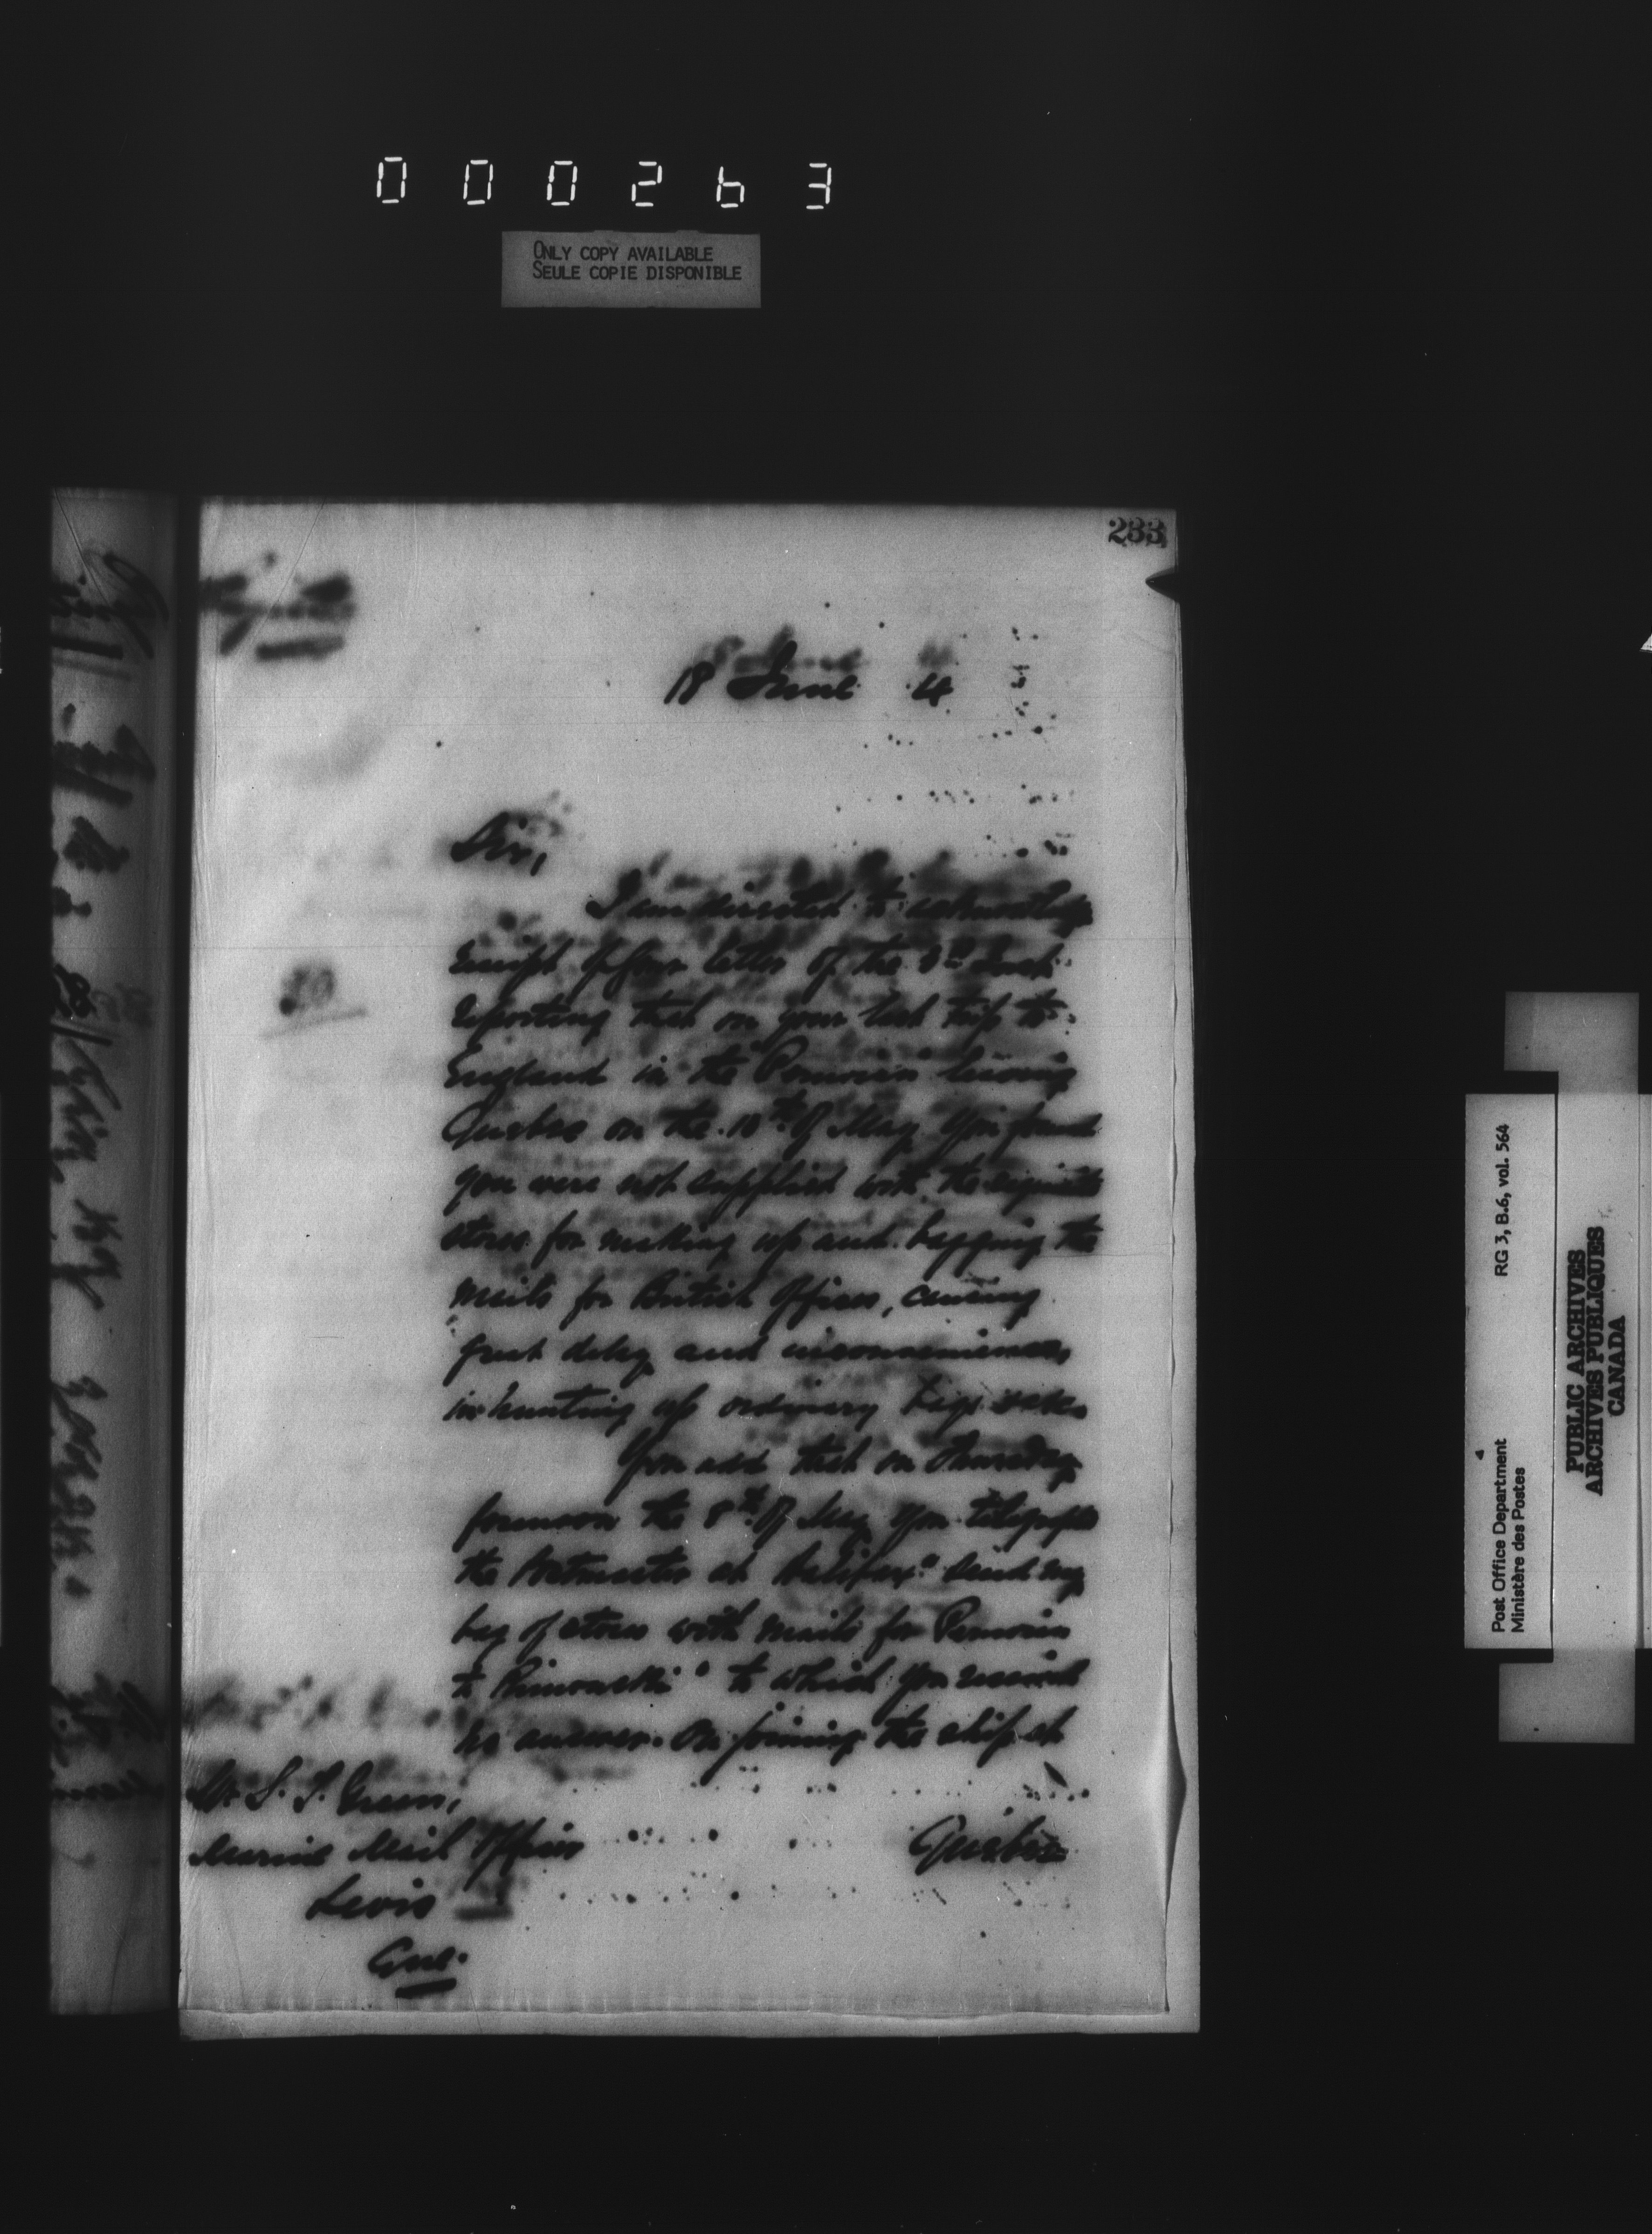 000263
ONLY COPY AVAILABLE
SEULE COPIE DISPONIBLE
233
18 June 4
Sir,
I am directed to acknowledge
receipt of your letter of the 3rd Inst
reporting that on your last trip to
England in the "Parisian" leaving
Quebec on the 10th of May you found
you were not supplied with the requisite
stores for making up and bagging the
mails for British Offices, causing
great delay and inconvenience,
in hunting up ordinary bags sacks
You add that on Thursday
forenoon the 8th of May you telegraphed
the Postmaster at Halifax "Send my
bag of stores with mails for
to Rimouski" to which you received
no answer. On joining the ship at
Quebec
Mr. S. T. Green,
Marine Mail Officer
Levis
Que.
Post Office Department
Ministère des Postes
RG 3, B.6, vol. 564
4
PUBLIC ARCHIVES
ARCHIVES PUBLIQUES
CANADA